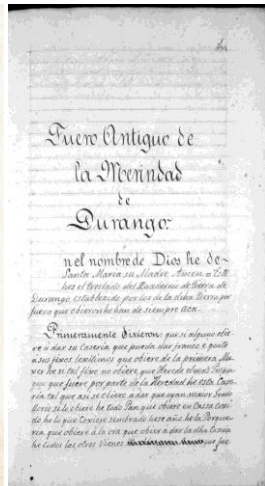 Fuero Antiguo de
la Merindad
de
Durango.
nel nombre de Dios he de
Santa Maria su Madre Amen = Este
hes el treslado del Quaderno de tierra de
Durango establezido por los de la dicha tierra por
fuero que obieron he han de siempre aca
Primeramente dixieron: que si alguno obie
re a dar su Caseria que pueda dar franco e quito
a sus fixos lexitimos que obiere de la primera Mu
ger he si tal fixo no obiere, que Herede el mas Propin
quo que fuere por parte de la Heredad he esta Case
ria tal que asi se obiere a dar que ayan maior
si le obiere he todo Pan que obiere en Cassa coxi
do he lo que toviere sembrado hese año he la Porque
ria que obiere a la ora que obiere a dar la dicha Casería
he todos los otros Vienes que fue